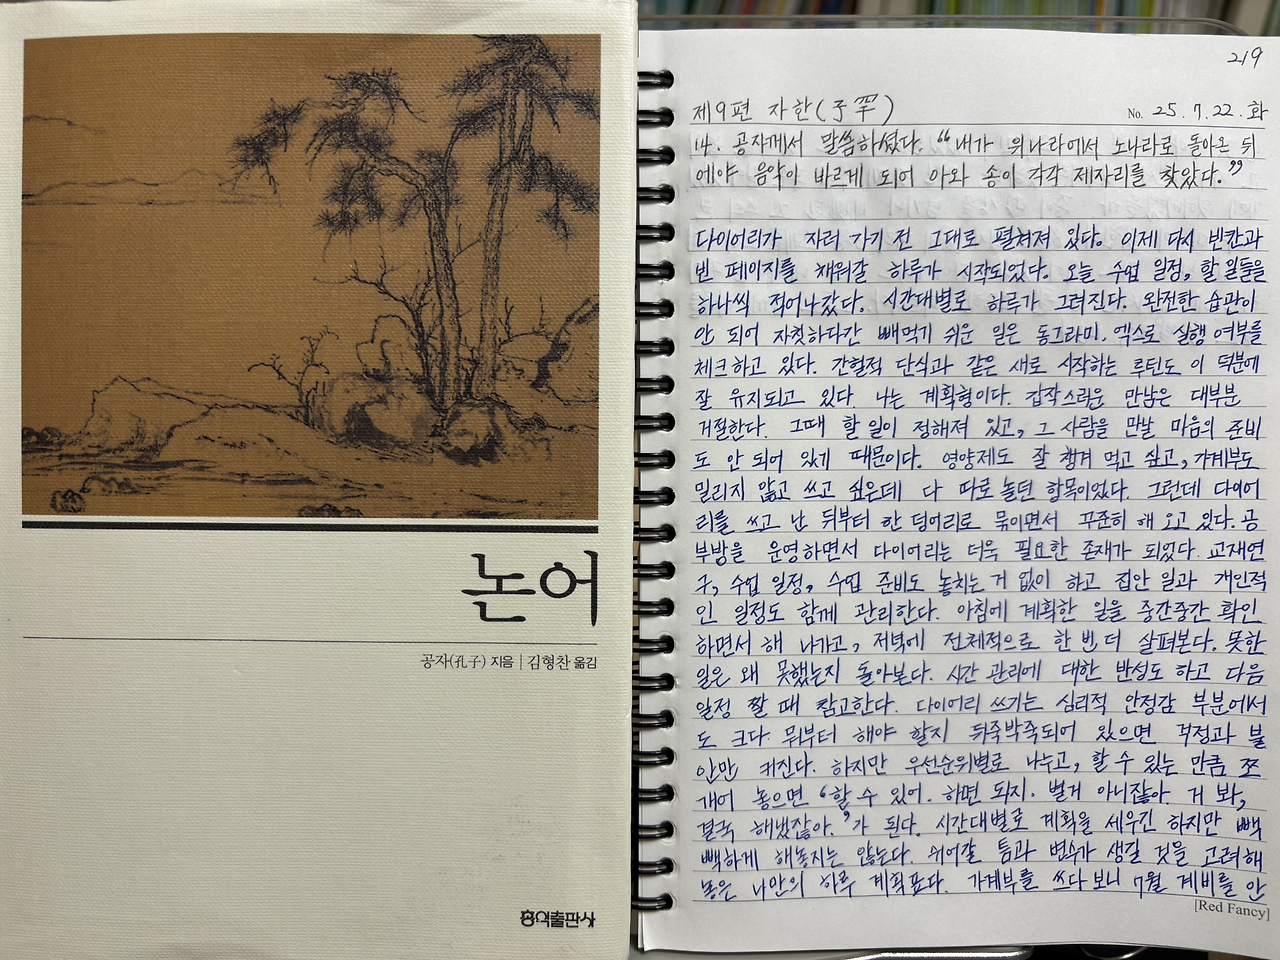 논어
공자(孔子) 지음 | 김형찬 옮김
홍익출판사
219
제9편 자한(子罕)
No. 25. 7. 22. 화
14. 공자께서 말씀하셨다. “내가 위나라에서 노나라로 돌아온 뒤
에야 음악이 바르게 되어 아와 송이 각각 제자리를 찾았다.”
다이어리가 자러 가기 전 그대로 펼쳐져 있다. 이제 다시 빈칸과
빈 페이지를 채워갈 하루가 시작되었다. 오늘 수업 일정, 할 일들을
하나씩 적어나갔다. 시간대별로 하루가 그려진다. 완전한 습관이
안 되어 자칫하다간 빼먹기 쉬운 일은 동그라미. 엑스로 실행 여부를
체크하고 있다. 간헐적 단식과 같은 새로 시작하는 루틴도 이 덕분에
잘 유지되고 있다. 나는 계획형이다. 갑작스러운 만남은 대부분
거절한다. 그때 할 일이 정해져 있고, 그 사람을 만날 마음의 준비
도 안 되어 있기 때문이다. 영양제도 잘 챙겨 먹고 싶고, 가계부도
밀리지 않고 쓰고 싶은데 다 따로 놀던 항목이었다. 그런데 다이어
리를 쓰고 난 뒤부터 한 덩어리로 묶이면서 꾸준히 해 오고 있다. 공
부방을 운영하면서 다이어리는 더욱 필요한 존재가 되었다. 교재연
구, 수업 일정, 수업 준비도 놓치는 거 없이 하고 집안 일과 개인적
인 일정도 함께 관리한다. 아침에 계획한 일을 중간중간 확인
하면서 해 나가고, 저녁에 전체적으로 한 번 더 살펴본다. 못한
일은 왜 못했는지 돌아본다. 시간 관리에 대한 반성도 하고 다음
일정 짤 때 참고한다. 다이어리 쓰기는 심리적 안정감 부분에서
도 크다 뭐부터 해야 할지 뒤죽박죽되어 있으면 걱정과 불
안만 커진다. 하지만 우선순위별로 나누고, 할 수 있는 만큼 쪼
개어 놓으면 ‘할 수 있어. 하면 되지. 별거 아니잖아. 거 봐,
결국 해냈잖아.’가 된다. 시간대별로 계획을 세우긴 하지만 빽
빽하게 해놓지는 않는다. 쉬어갈 틈과 변수가 생길 것을 고려해
놓은 나만의 하루 계획표다. 가계부를 쓰다 보니 7월 계비를 안
[Red Fancy]